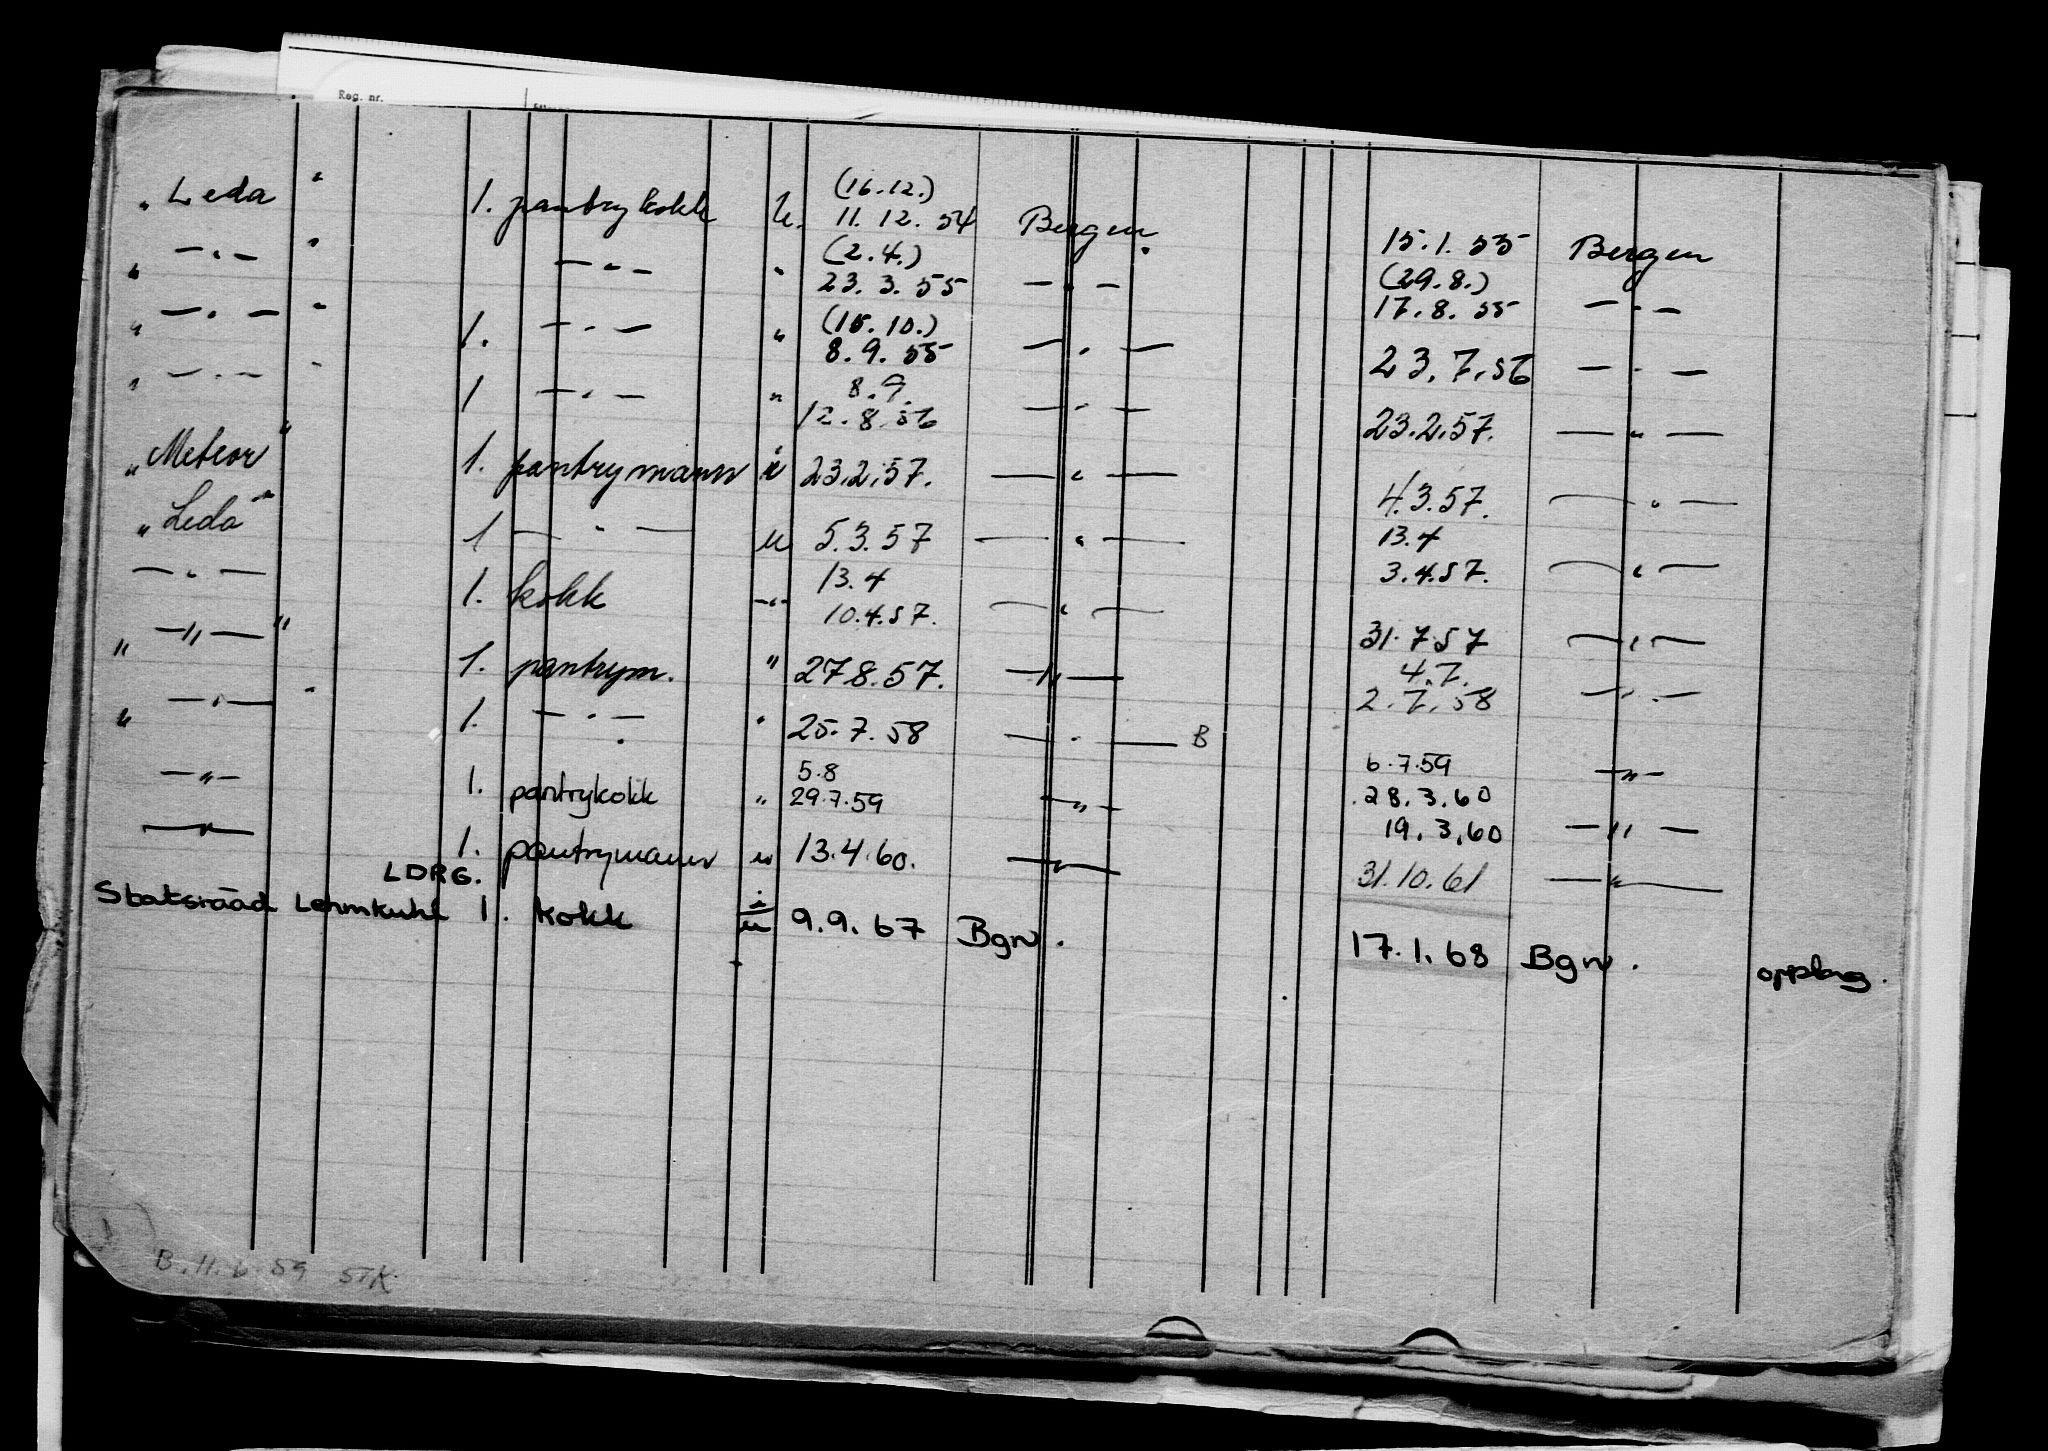 Reg. nr.
„ Leda " 1. pantrykokk u. (16.12.) 11.12.54 Bergen. 15.1.55 Bergen
„ —„— " —„— " (2.4.) 23.3.55 —„— (29.8.) 17.8.55 —„—
„ —„— " 1. —„— " (15.10.) 8.9.55 —„— 23.7.56 —„—
„ —„— " 1 —„— " 8.9. 12.8.56 —„— 23.2.57. —„—
„ Meteor " 1. pantrymann i 23.2.57. —„— 4.3.57. —„—
„ Leda " 1 —„— u 5.3.57 —„— 13.4 3.4.57. —„—
—„— 1. kokk —„— 13.4 10.4.57. —„— 31.7.57 —„—
„ —„— " 1. pantrym. " 27.8.57. —„— 4.7. 2.7.58 —„—
„ —„— " 1. —„— " 25.7.58 —„— B 6.7.59 —„—
—„— 1. pantrykokk " 5.8 29.7.59 —„— 28.3.60 19.3.60 —„—
—„— 1. pantrymann u 13.4.60. —„— 31.10.61 —„—
LDRG.
Statsraad Lehmkuhl 1. kokk i/u 9.9.67 Bgn. 17.1.68 Bgn. opplag.
B. 11.6.59 STK